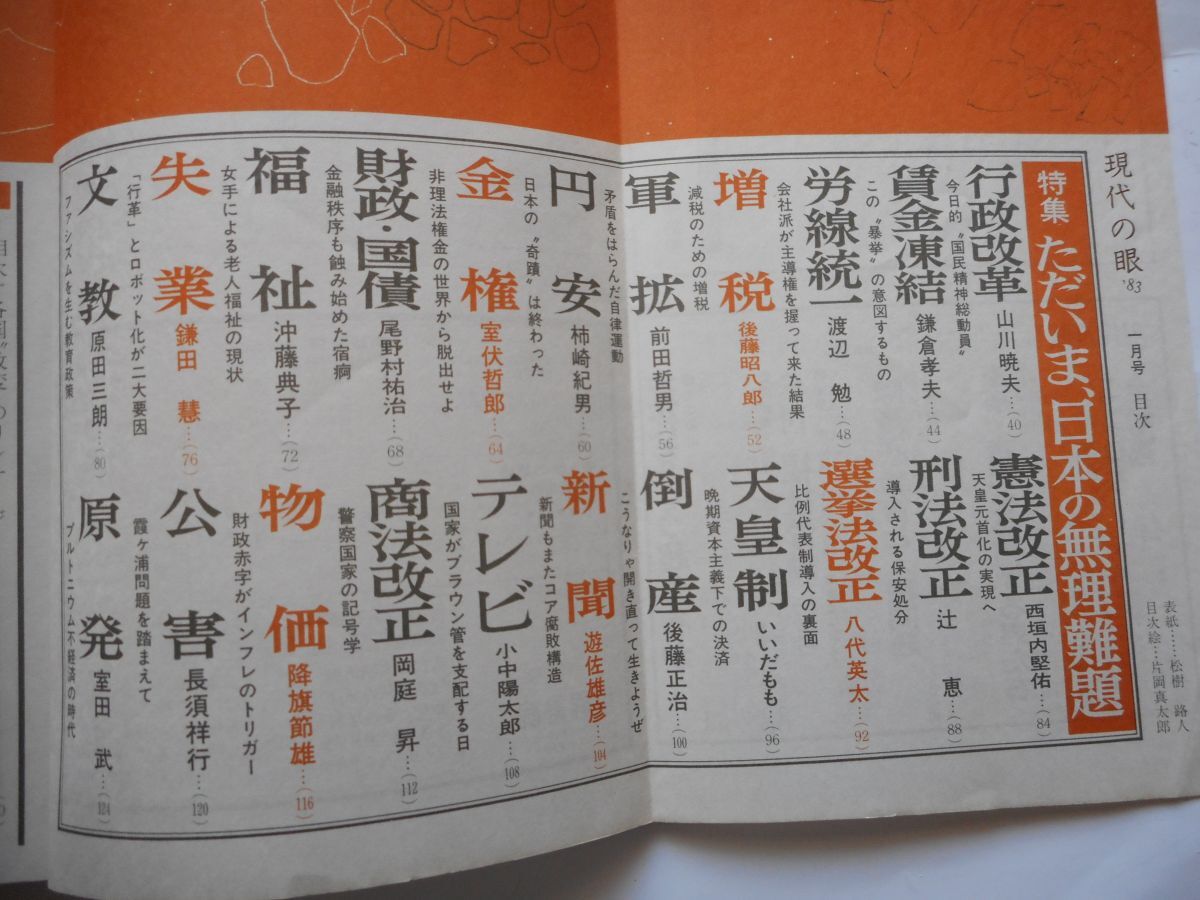 現代の眼 '83 一月号 目次
表紙……松樹 路人
目次絵…片岡真太郎
特集 ただいま、日本の無理難題
行政改革 山川暁夫…(40)
今日的〝国民精神総動員〟
賃金凍結 鎌倉孝夫…(44)
この〝暴挙〟の意図するもの
労線統一 渡辺 勉…(48)
会社派が主導権を握って来た結果
増税 後藤昭八郎…(52)
減税のための増税
軍拡 前田哲男…(56)
矛盾をはらんだ自律運動
円安 柿崎紀男…(60)
日本の〝奇蹟〟は終わった
金権 室伏哲郎…(64)
非理法権金の世界から脱出せよ
財政・国債 尾野村祐治…(68)
金融秩序も蝕み始めた宿痾
福祉 沖藤典子…(72)
女手による老人福祉の現状
失業 鎌田 慧…(76)
「行革」とロボット化が二大要因
文教 原田三朗…(80)
ファシズムを生む教育政策
憲法改正 西垣内堅佑…(84)
天皇元首化の実現へ
刑法改正 辻 恵…(88)
導入される保安処分
選挙法改正 八代英太…(92)
比例代表制導入の裏面
天皇制 いいだもも…(96)
晩期資本主義下での決済
倒産 後藤正治…(100)
こうなりゃ開き直って生きようぜ
新聞 遊佐雄彦…(104)
新聞もまたコア腐敗構造
テレビ 小中陽太郎…(108)
国家がブラウン管を支配する日
商法改正 岡庭 昇…(112)
警察国家の記号学
物価 降旗節雄…(116)
財政赤字がインフレのトリガー
公害 長須祥行…(120)
霞ヶ浦問題を踏まえて
原発 室田 武…(124)
プルトニウム不経済の時代